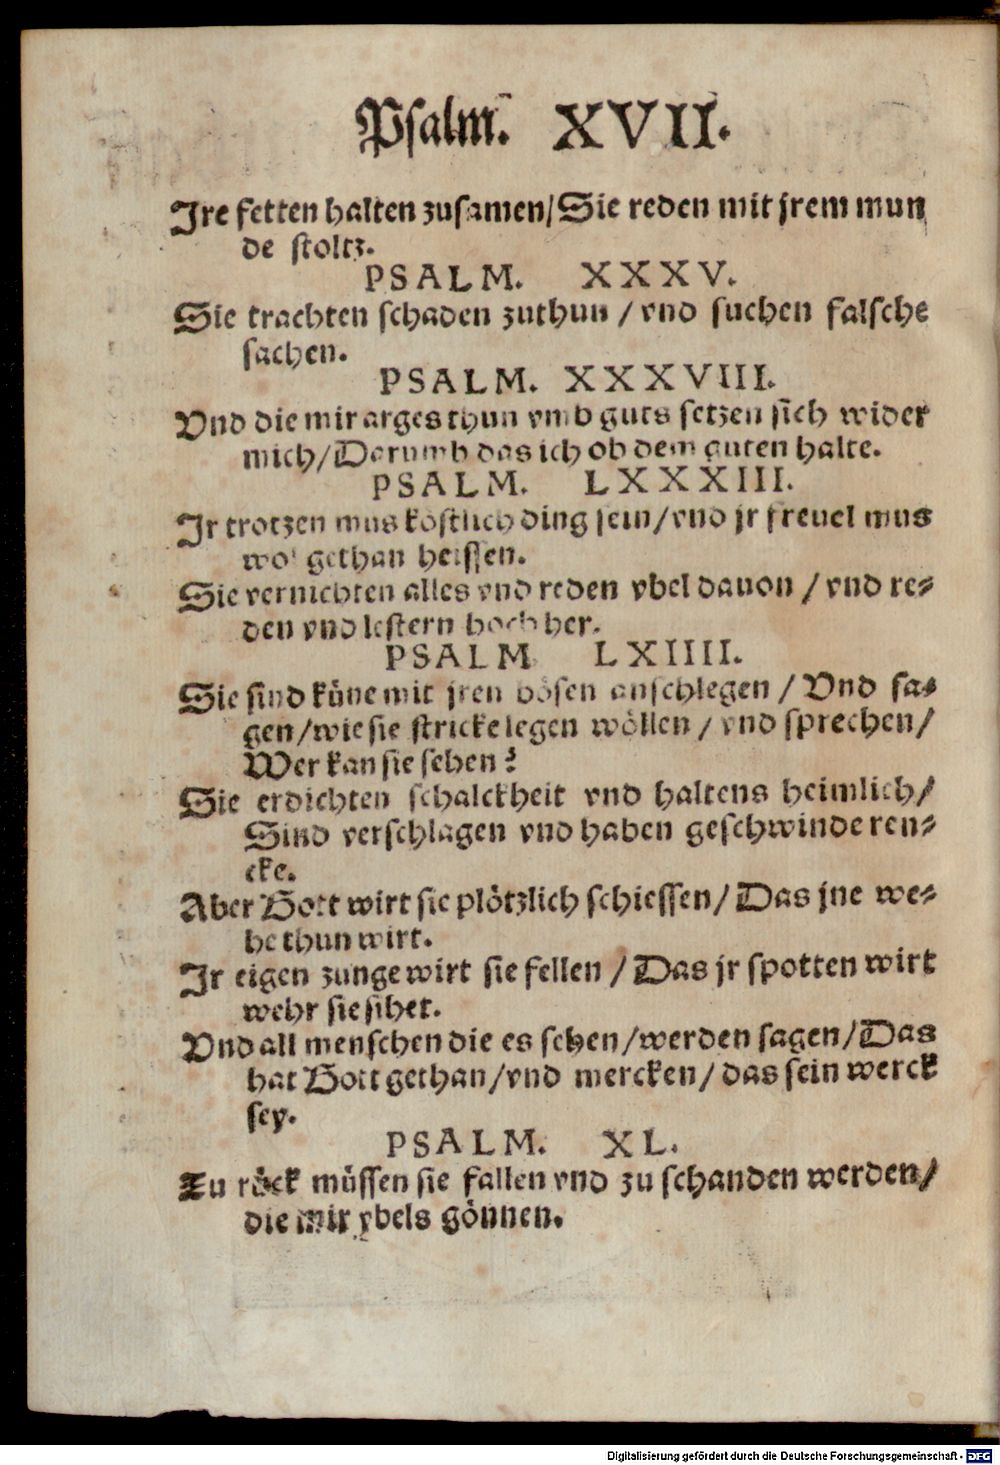 Psalm. XVII.
Jre fetten halten zusamen/Sie reden mit jrem mun
de stoltz.
PSALM. XXXV.
Sie trachten schaden zuthun / vnd suchen falsche
sachen.
PSALM. XXXVIII.
Vnd die mir arges thun vmb guts setzen sich wider
mich/Darumb das ich ob dem guten halte.
PSALM. LXXXIII.
Jr trotzen mus köstlich ding sein/vnd jr freuel mus
wol gethan heissen.
Sie vernichten alles vnd reden vbel dauon / vnd re⸗
den vnd lestern hoch her.
PSALM LXIIII.
Sie sind küne mit jren bösen anschlegen / Vnd sa⸗
gen/wie sie stricke legen wöllen / vnd sprechen/
Wer kan sie sehen?
Sie erdichten schalckheit vnd haltens heimlich/
Sind verschlagen vnd haben geschwinde ren⸗
cke.
Aber Gott wirt sie plötzlich schiessen/Das jne we⸗
he thun wirt.
Jr eigen zunge wirt sie fellen / Das jr spotten wirt
wehr sie sihet.
Vnd all menschen die es sehen/werden sagen/Das
hat Gott gethan/vnd mercken/das sein werck
sey.
PSALM. XL.
Zu röck müssen sie fallen vnd zu schanden werden/
die mir vbels gönnen.
Digitalisierung gefördert durch die Deutsche Forschungsgemeinschaft - DFG